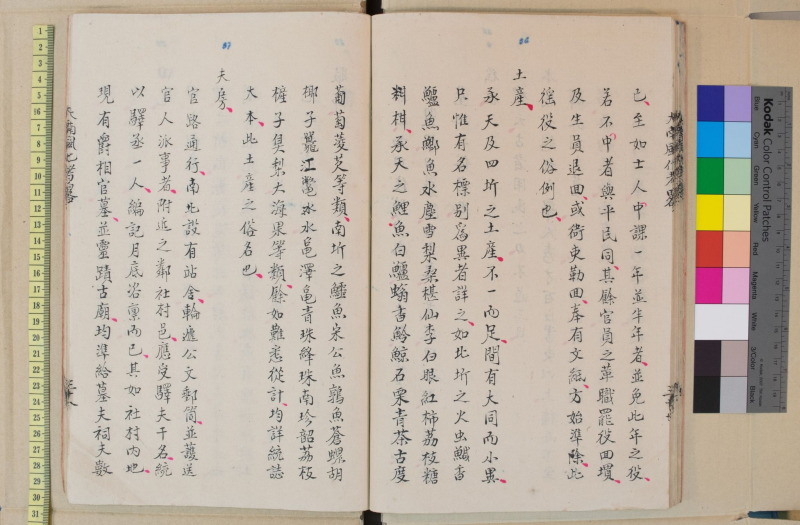 已、至如士人中課一年並半年者、並免此年之役、
若不中者與平民同、其餘官員之革職罷役回壩
及生員退回、或衙吏勒回、奉有文紙、方始準除、此
徭役之俗例也、
土產、
承天及四圻之土產、不一而足、間有大同而小異
只惟有名標別爲異者詳之、如北圻之火虫
鱸魚鄉魚水塵雪梨桑椹仙李白眼紅柿荔枝糖
料柑、承天之鯉魚白鱸 鯨石栗青茶古度
葡萄菱芡等類、南圻之鱷魚宋公魚鶉魚蒼螺胡
椰子鼉江鱉氷水龜澤龜青珠絳珠南珍韶荔枝
榷子臭梨大海果等類、餘如難悉從計、均詳統誌
大本、此土產之俗名也、
夫房、
官路通行、南北設有站舍、輪遞公文郵筒、並護送
官人派事者、附近之鄰社村邑、應受驛夫干名、統
以驛丞一人、編記月底咨稟而已、其如社村內地、
現有爵相官墓、並靈蹟古廟、均準給墓夫祠夫數
37
36
Kodak Color Control Patches
Blue
Cyan
Green
Yellow
Red
Magenta
White
3/Color
Black